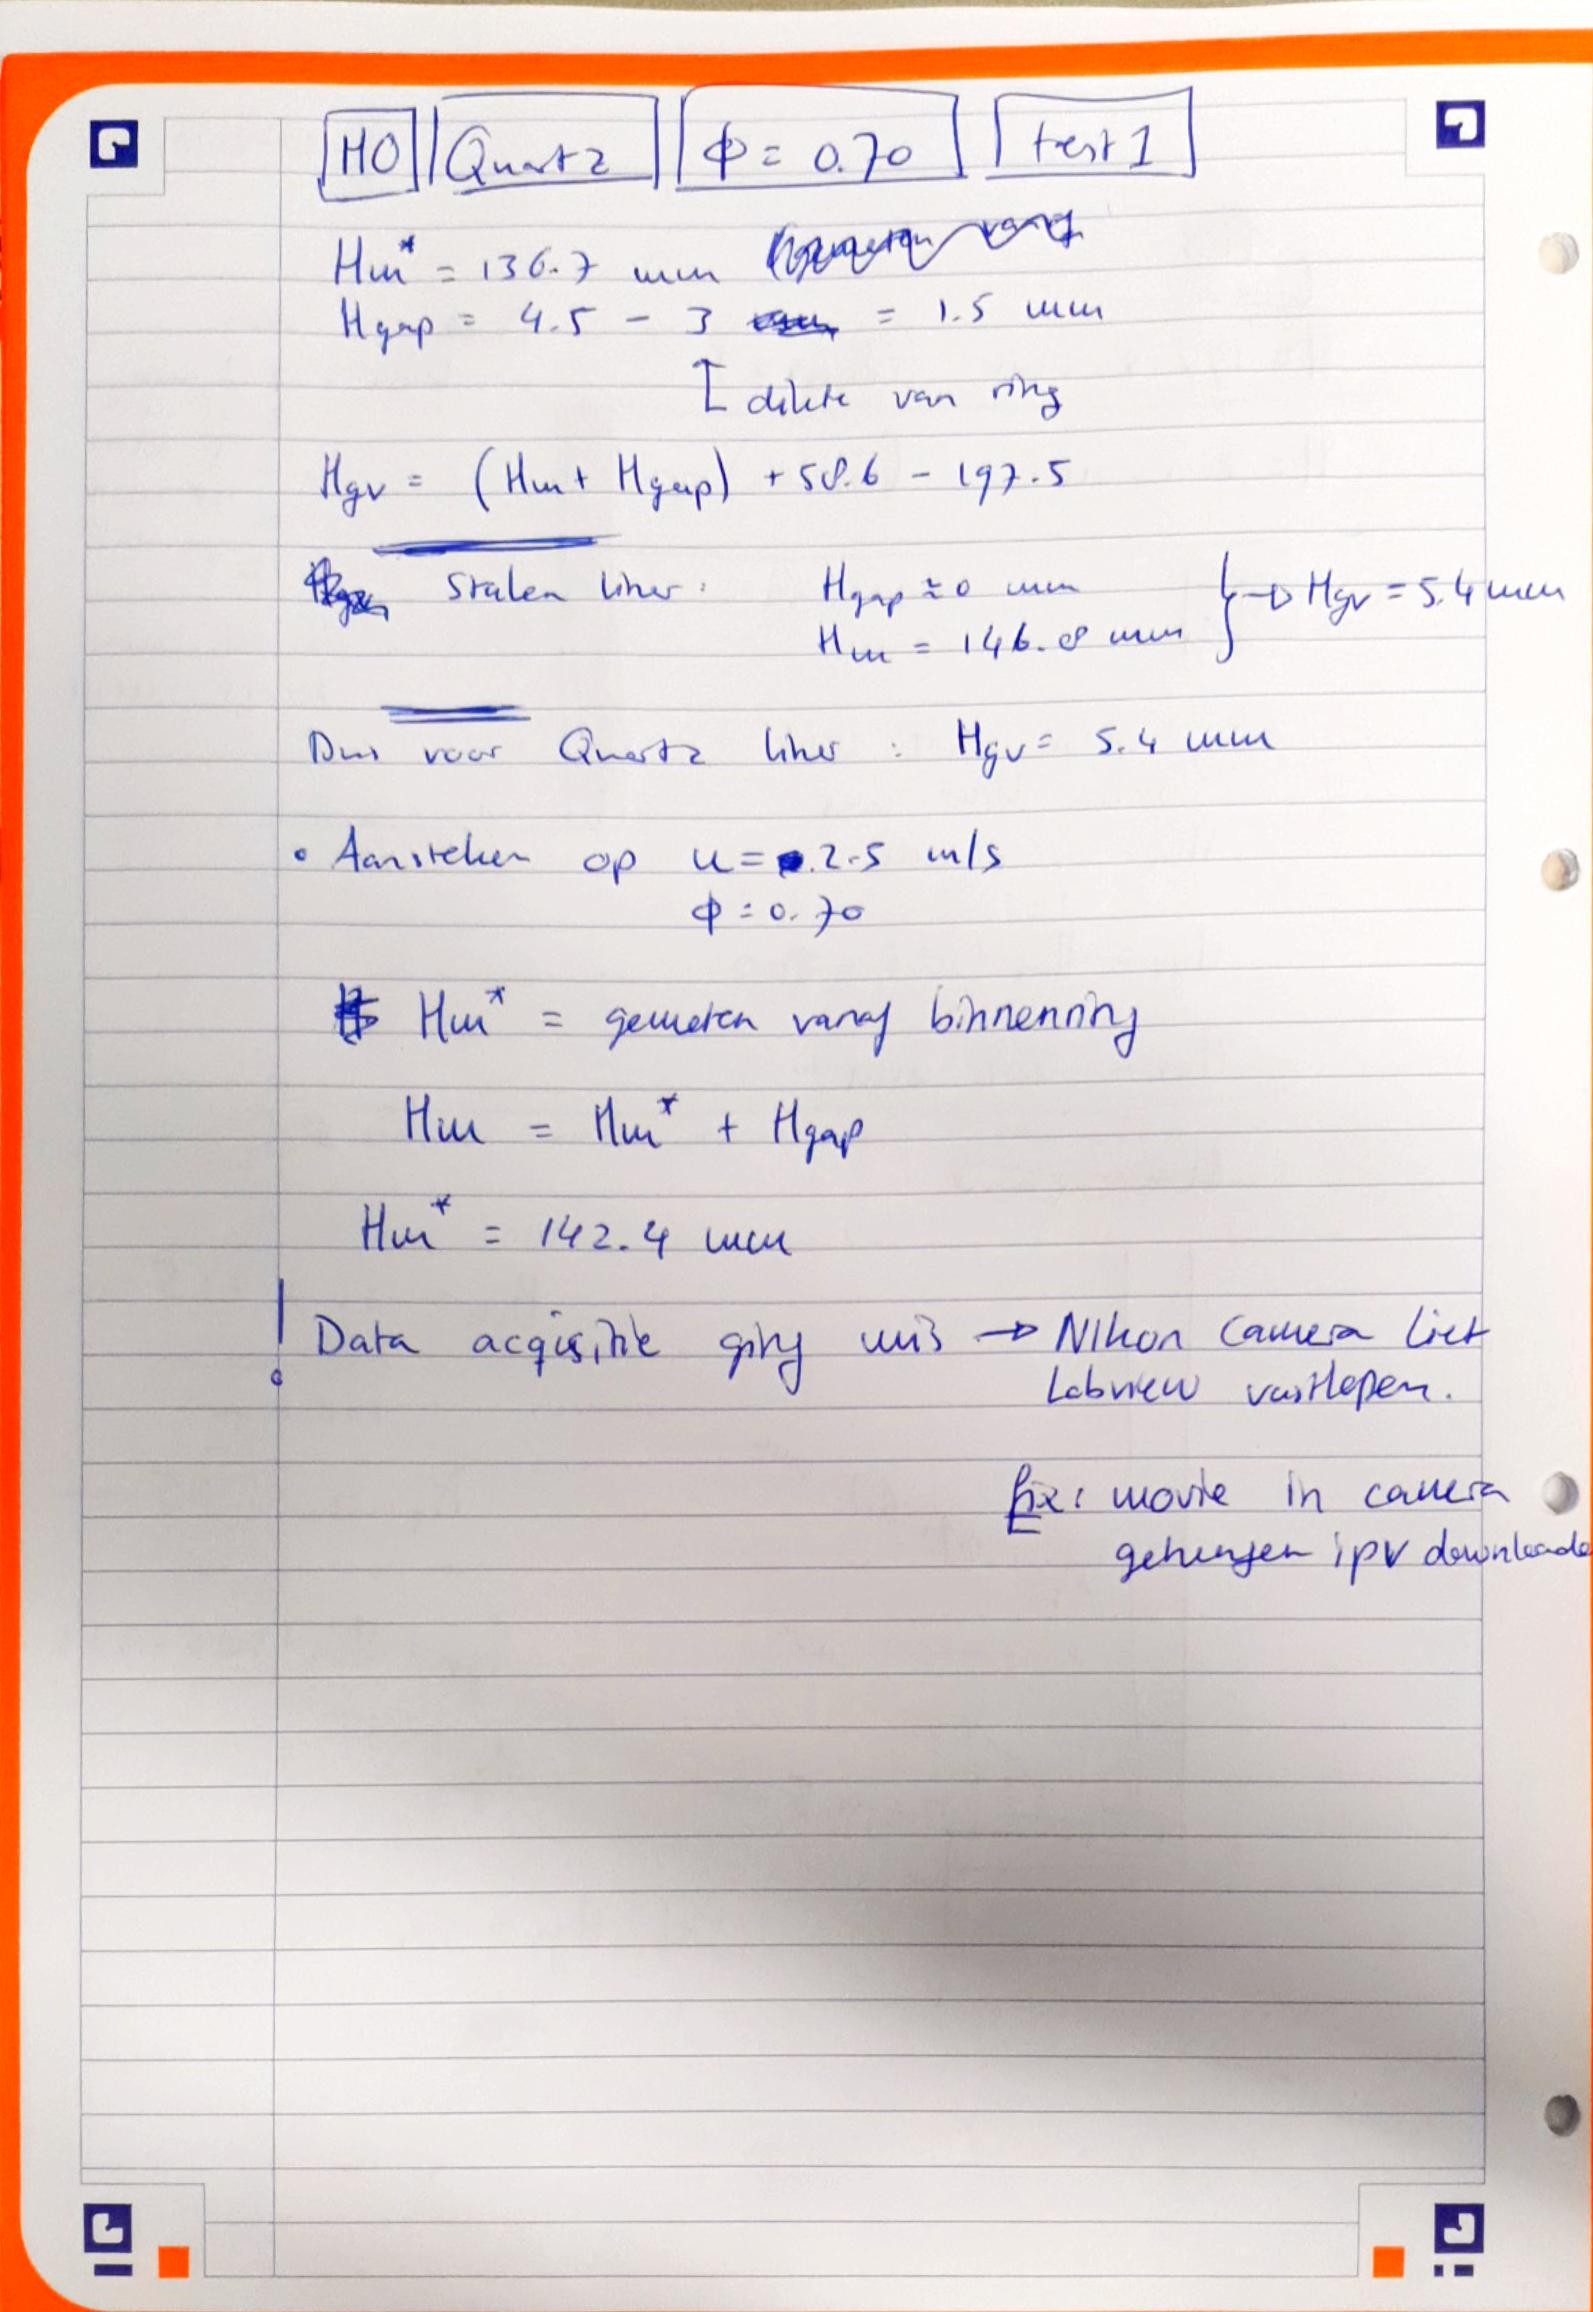 H0 Quartz ϕ = 0.70 test 1
Hm* = 136.7 mm
Hgap = 4.5 - 3 = 1.5 mm
dikte van ring
Hgv = (Hm + Hgap) + 58.6 - 197.5
Stalen liner: Hgap ≈ 0 mm
Hm = 146.8 mm → Hgv = 5.4 mm
Dus voor Quartz liner : Hgv = 5.4 mm
• Aansteken op u = 2.5 m/s
ϕ = 0.70
Hm* = gemeten vanaf binnenring
Hm = Hm* + Hgap
Hm* = 142.4 mm
! Data acqisitie ging mis → Nikon camera liet
Labview vastlopen.
fix: movie in camera
geheugen ipv downloade